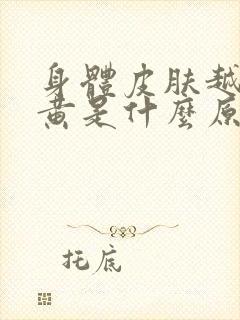 身體皮膚越
黃是什麼原
托底